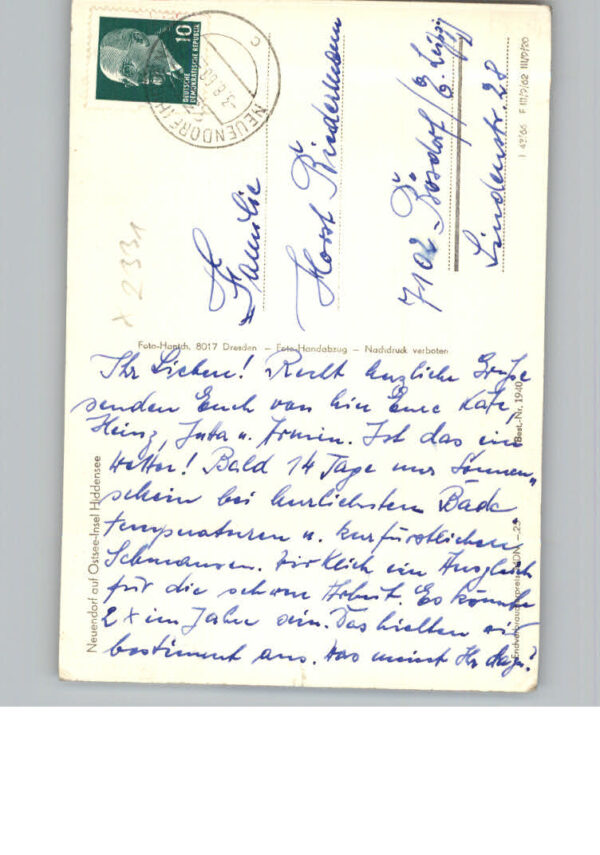 10
DEUTSCHE
DEMOKRATISCHE REPUBLIK
NEUENDORF
c
Familie
Horst Biedermann
7102 Bösdorf/E
Lindenstr. 28
I 42/66 F III/9/62 III/9/20
x 2331
Foto-Hantch, 8017 Dresden – Foto-Handabzug – Nachdruck verboten
Ihr Lieben! Recht herzliche Grüße
senden Euch von hier Eure Käte,
Heinz, Juta u. Armin. Ist das ein
Wetter! Bald 14 Tage nur Sonnen-
schein bei herrlichsten Bade
temperaturen u. kurfürstlichem
Schmausen. Wirklich ein Ausgleich
für die schwere Arbeit. Es könnte
2 x im Jahre sein. Das hielten wir
bestimmt aus. Was meint Ihr dazu?
Neuendorf auf Ostsee-Insel Hiddensee
Best.-Nr. 1940
Endverbraucherpreis MDN –.25